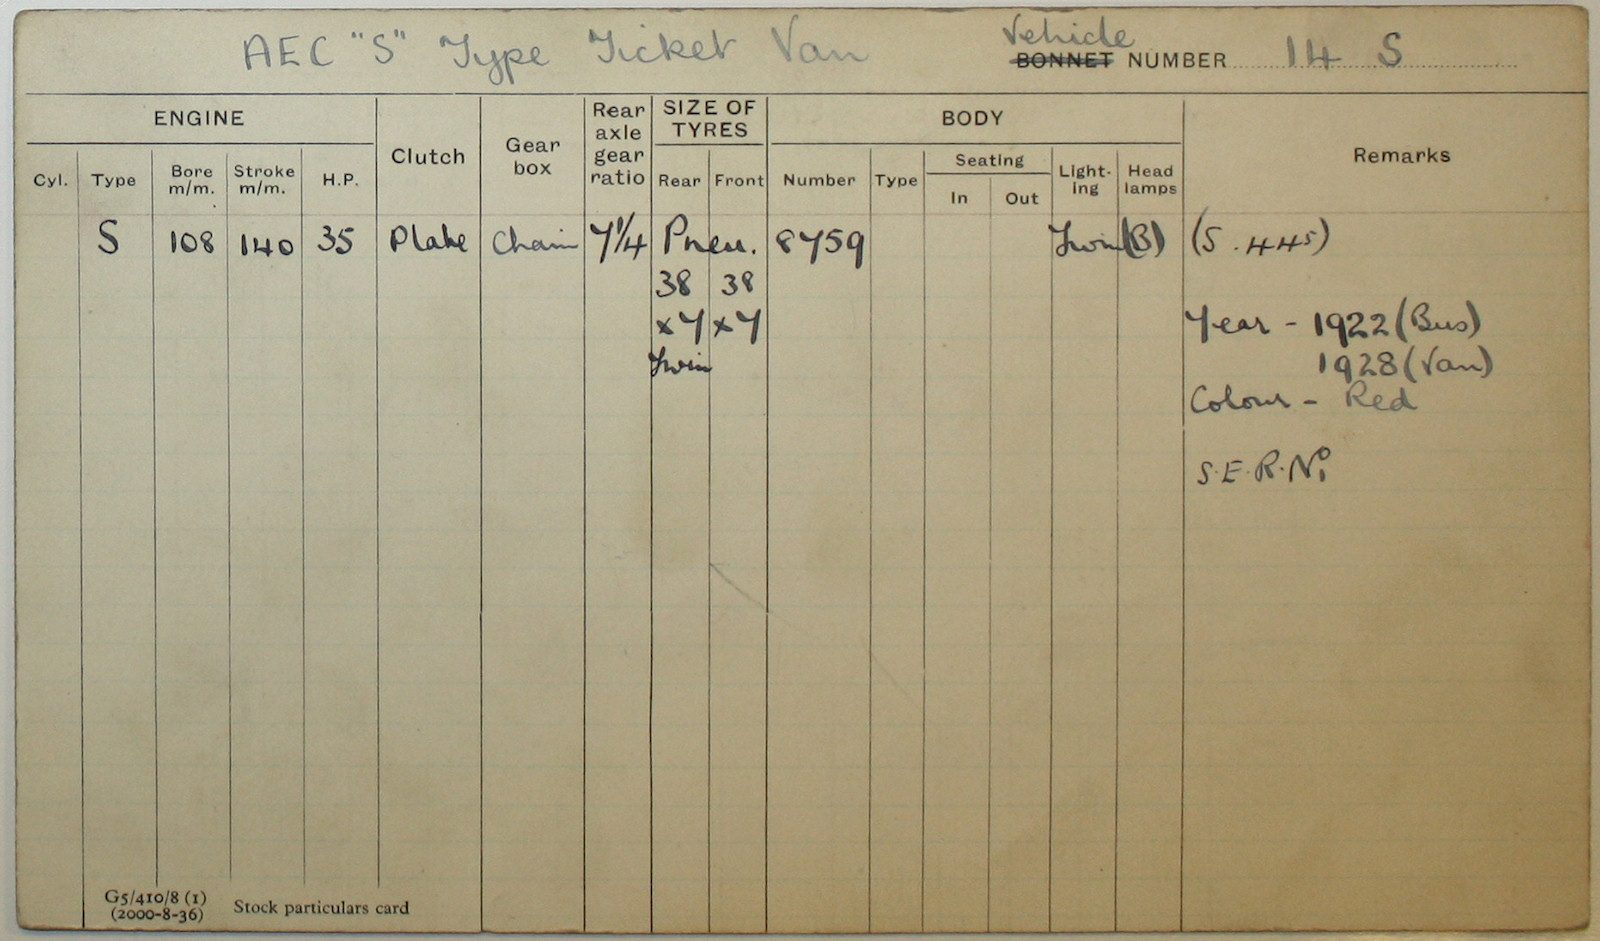 AEC "S" Type Ticket Van Vehicle
BONNET NUMBER 14 S
ENGINE Clutch Gear box Rear axle gear ratio SIZE OF TYRES BODY Remarks
Cyl. Type Bore m/m. Stroke m/m. H.P. Rear Front Number Type Seating In Out Light-ing Head lamps
S 108 140 35 Plate Chain 7 1/4 Pneu. 8759 Twin (B) (S. 445)
38 38
x7 x7 Year - 1922 (Bus)
Twin 1928 (Van)
Colour - Red
S.E.R. No.
G5/410/8 (1)
(2000-8-36) Stock particulars card